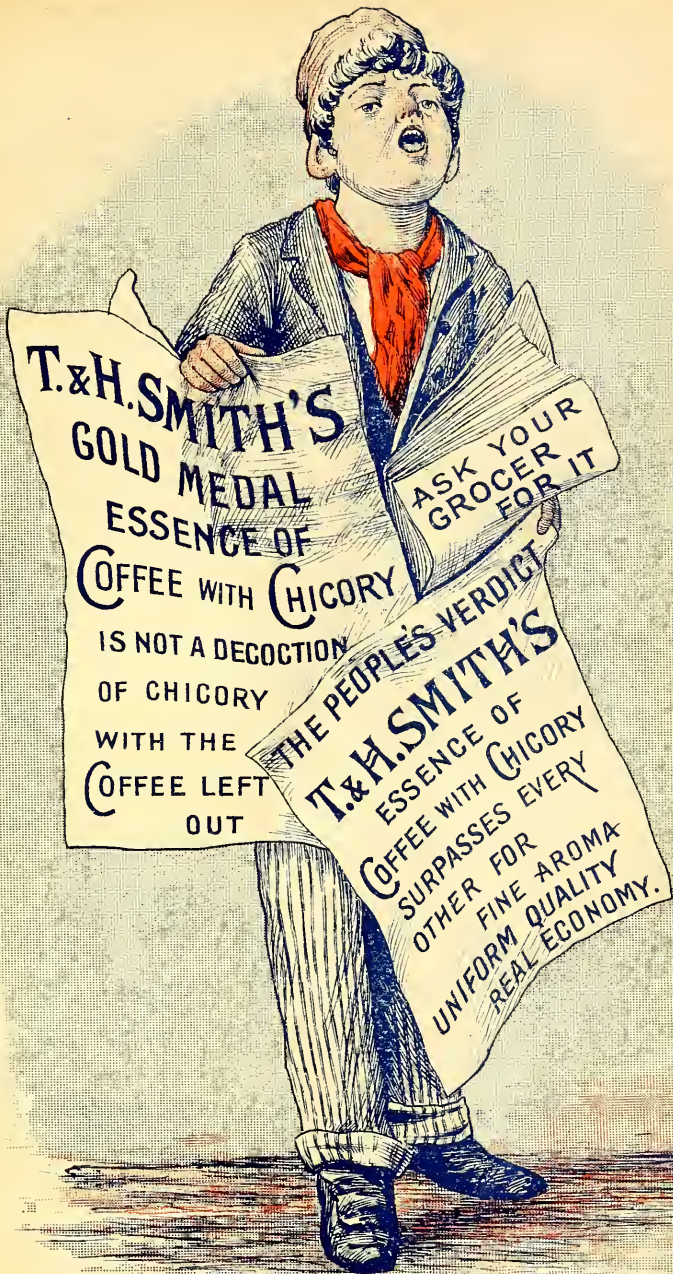 T. & H. SMITH'S
GOLD MEDAL
ESSENCE OF
COFFEE WITH CHICORY
IS NOT A DECOCTION
OF CHICORY
WITH THE
COFFEE LEFT
OUT
ASK YOUR
GROCER
FOR IT
THE PEOPLE'S VERDICT
T. & H. SMITH'S
ESSENCE OF
COFFEE WITH CHICORY
SURPASSES EVERY
OTHER FOR
FINE AROMA
UNIFORM QUALITY
REAL ECONOMY.